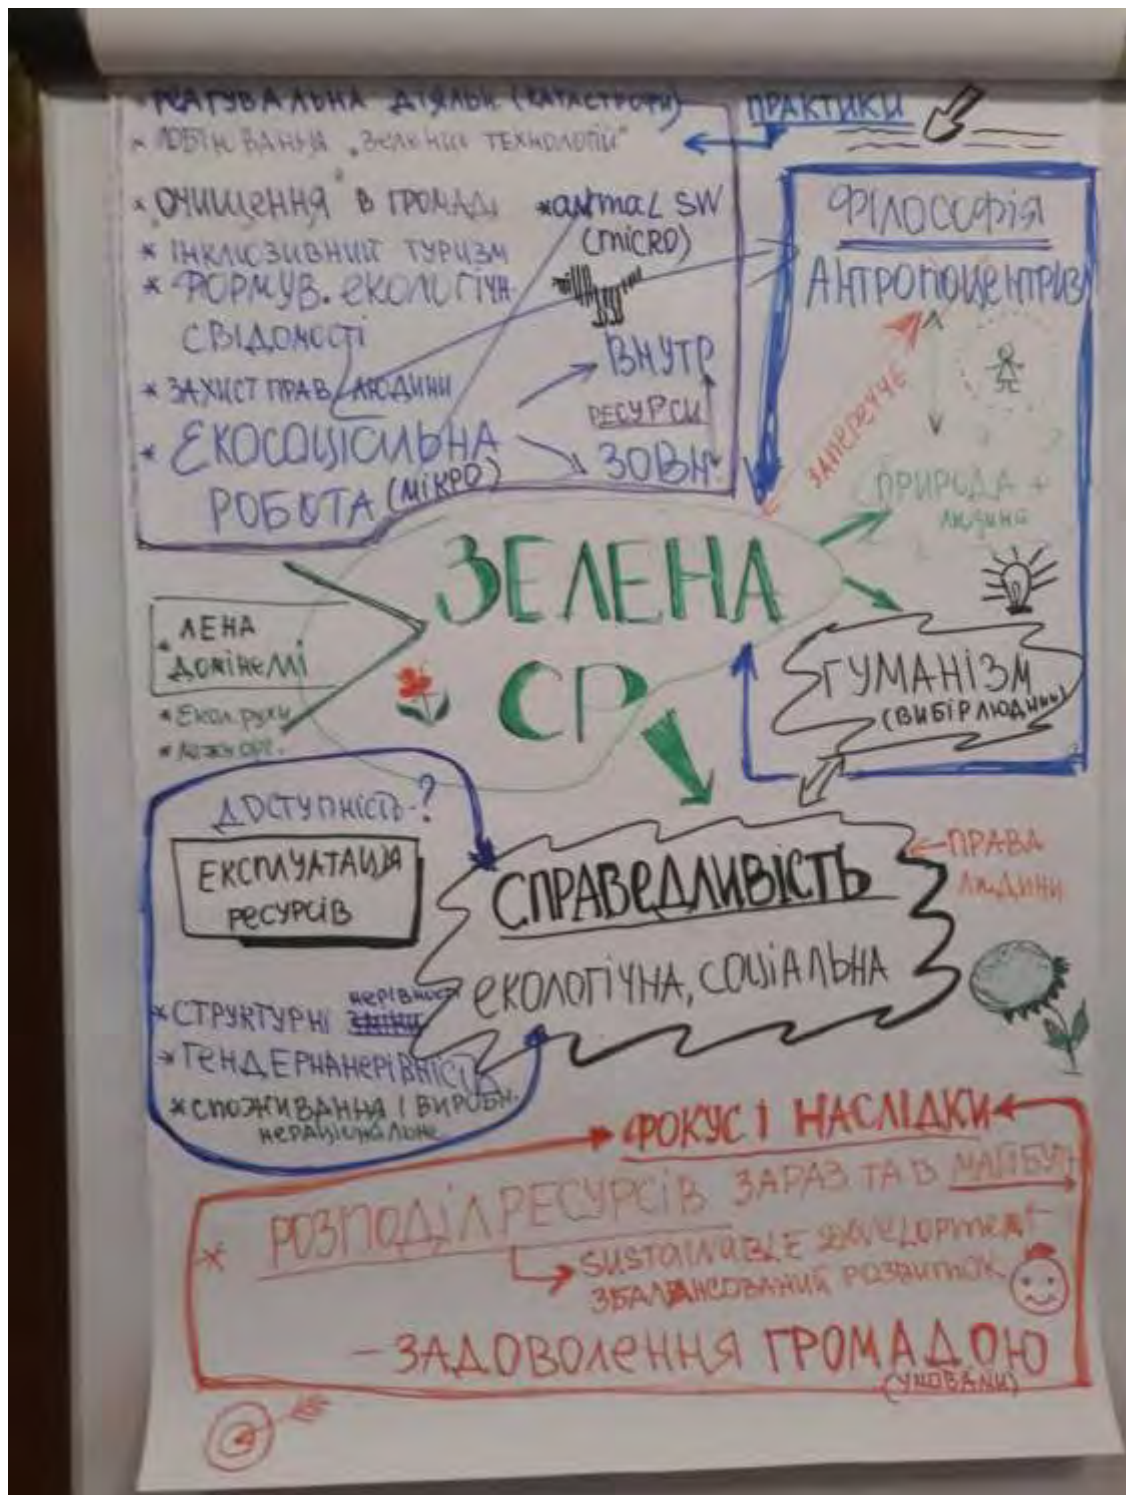 РЕАГУВАЛЬНА ДІЯЛЬН (КАТАСТРОФИ)
ПРАКТИКИ
* ЛОБІЮВАННЯ „Зелених ТЕХНОЛОГІЙ"
* „ОЧИЩЕННЯ" В ГРОМАДІ
* ІНКЛЮЗИВНИЙ ТУРИЗМ
* ФОРМУВ. ЕКОЛОГІЧН.
СВІДОМОСТІ
* ЗАХИСТ ПРАВ ЛЮДИНИ
* ЕКОСОЦІАЛЬНА
РОБОТА (МІКРО)
*anımaL SW
(micro)
ВНУТР
РЕСУРСИ
ЗОВН
ФІЛОСОФІЯ
АНТРОПОЦЕНТРИЗ
ЗАПЕРЕЧУЄ
ПРИРОДА +
людина
ГУМАНІЗМ
(ВИБІР ЛЮДИНИ)
ЗЕЛЕНА
СР
ЛЕНА
ДОМІНЕЛЛІ
* Екол. рухи
ДОСТУПНІСТЬ-?
ЕКСПЛУАТАЦІЯ
РЕСУРСІВ
* СТРУКТУРНІ нерівност ЗМІНИ
* ГЕНДЕРНА НЕРІВНІСТЬ
* СПОЖИВАННЯ І ВИРОБН.
нераціональне
СПРАВЕДЛИВІСТЬ
ЕКОЛОГІЧНА, СОЦІАЛЬНА
ПРАВА
людини
ФОКУС І НАСЛІДКИ
* РОЗПОДІЛ РЕСУРСІВ ЗАРАЗ ТА В МАЙБУТ
SUSTAINABLE DEVELOPMENT
ЗБАЛАНСОВАНИЙ РОЗВИТОК
- ЗАДОВОЛЕННЯ ГРОМАДОЮ